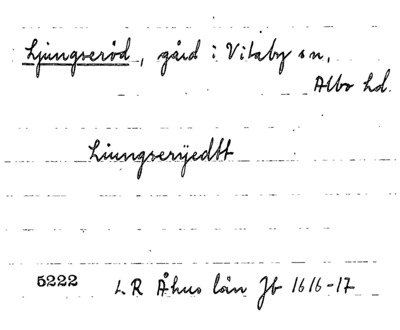 Ljungseröd, gård i Vitaby sn,
Albo hd.
Liungserÿedtt
5222 L R Åhus län Jb 1616-17